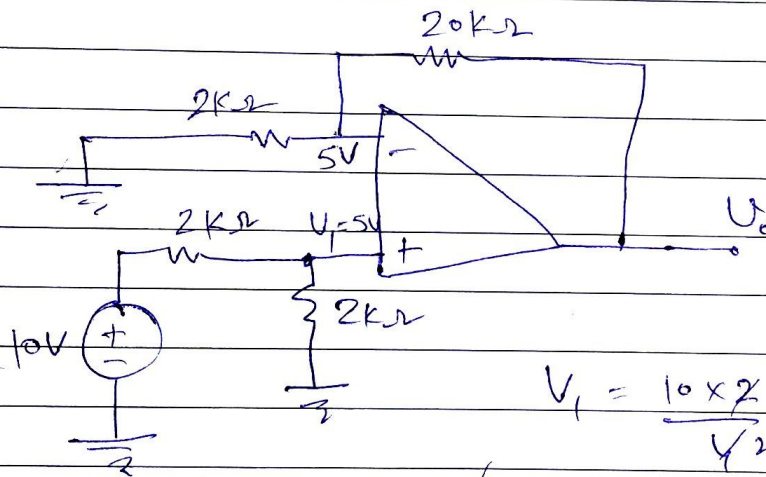 20KΩ
2KΩ
5V
-
2KΩ
V₁=5V
+
V₀
2KΩ
10V
+
-
V₁ = 10 x 2
4 2